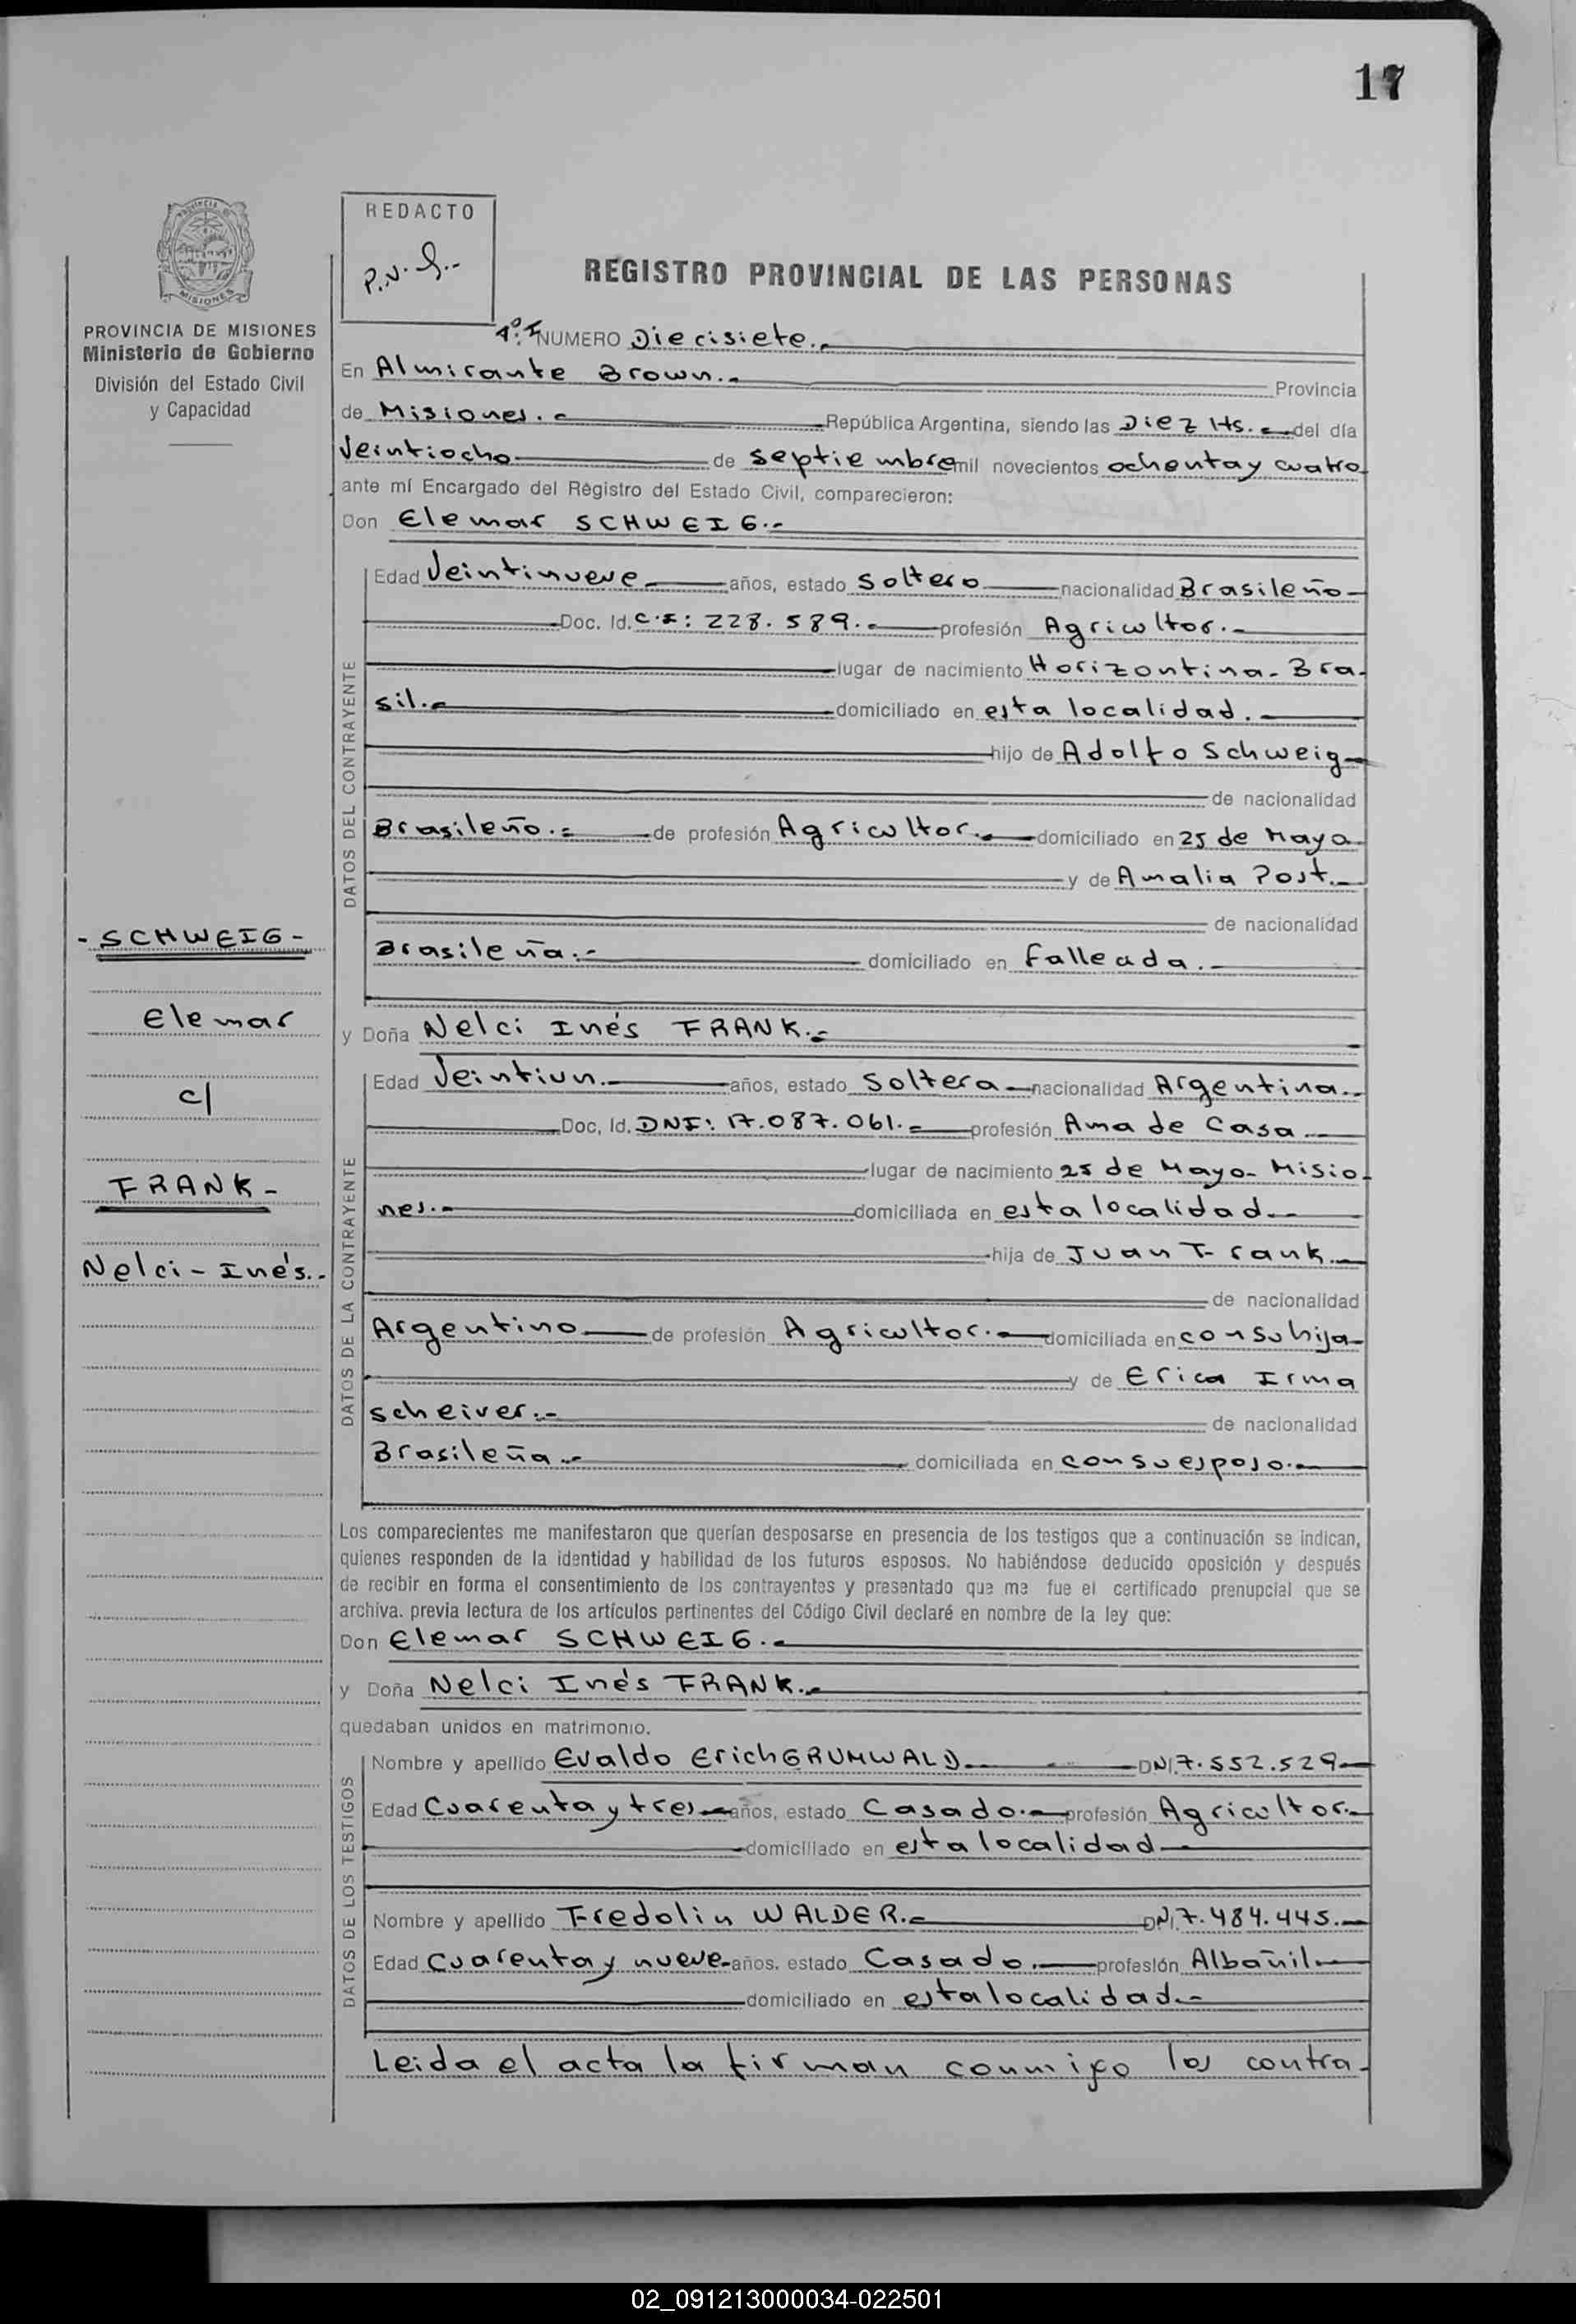 17
REDACTO
P.V.S.-
REGISTRO PROVINCIAL DE LAS PERSONAS
MISIONES
PROVINCIA DE MISIONES
Ministerio de Gobierno
División del Estado Civil
y Capacidad
-SCHWEIG-
Elemar
c/
FRANK-
Nelci-Inés.-
NUMERO Diecisiete.-
En Almirante Brown.- Provincia
de Misiones.- República Argentina, siendo las Diez Hs.- del día
Veintiocho de septiembre mil novecientos ochenta y cuatro
ante mí Encargado del Registro del Estado Civil, comparecieron:
Don Elemar SCHWEIG.-
DATOS DEL CONTRAYENTE
Edad Veintinueve años, estado Soltero nacionalidad Brasileño
Doc. Id. C.I: 228.589.- profesión Agricultor.-
lugar de nacimiento Horizontina-Bra-
sil.- domiciliado en esta localidad.-
hijo de Adolfo Schweig
de nacionalidad
Brasileño.- de profesión Agricultor.- domiciliado en 25 de Mayo
y de Amalia Post.-
de nacionalidad
Brasileña.- domiciliado en Falleada.-
y Doña Nelci Inés FRANK.-
DATOS DE LA CONTRAYENTE
Edad Veintiun.- años, estado Soltera nacionalidad Argentina.-
Doc, Id. DNI: 17.087.061.- profesión Ama de Casa.-
lugar de nacimiento 25 de Mayo-Misio-
nes.- domiciliada en esta localidad.-
hija de Juan Frank.-
de nacionalidad
Argentino de profesión Agricultor.- domiciliada en con su hija
y de Erica Irma
Scheiver.- de nacionalidad
Brasileña.- domiciliada en con su esposo.-
Los comparecientes me manifestaron que querían desposarse en presencia de los testigos que a continuación se indican,
quienes responden de la identidad y habilidad de los futuros esposos. No habiéndose deducido oposición y después
de recibir en forma el consentimiento de los contrayentes y presentado que me fue el certificado prenupcial que se
archiva. previa lectura de los artículos pertinentes del Código Civil declaré en nombre de la ley que:
Don Elemar SCHWEIG.-
y Doña Nelci Inés FRANK.-
quedaban unidos en matrimonio.
DATOS DE LOS TESTIGOS
Nombre y apellido Evaldo Erich GRUMWALD.- DNI. 7.552.529
Edad Cuarenta y tres años, estado Casado.- profesión Agricultor.-
domiciliado en esta localidad
Nombre y apellido Fredolin WALDER.- DNI. 7.484.445.-
Edad Cuarenta y nueve años. estado Casado.- profesión Albañil.-
domiciliado en esta localidad.-
Leida el acta la firman conmigo los contra-
02_091213000034-022501